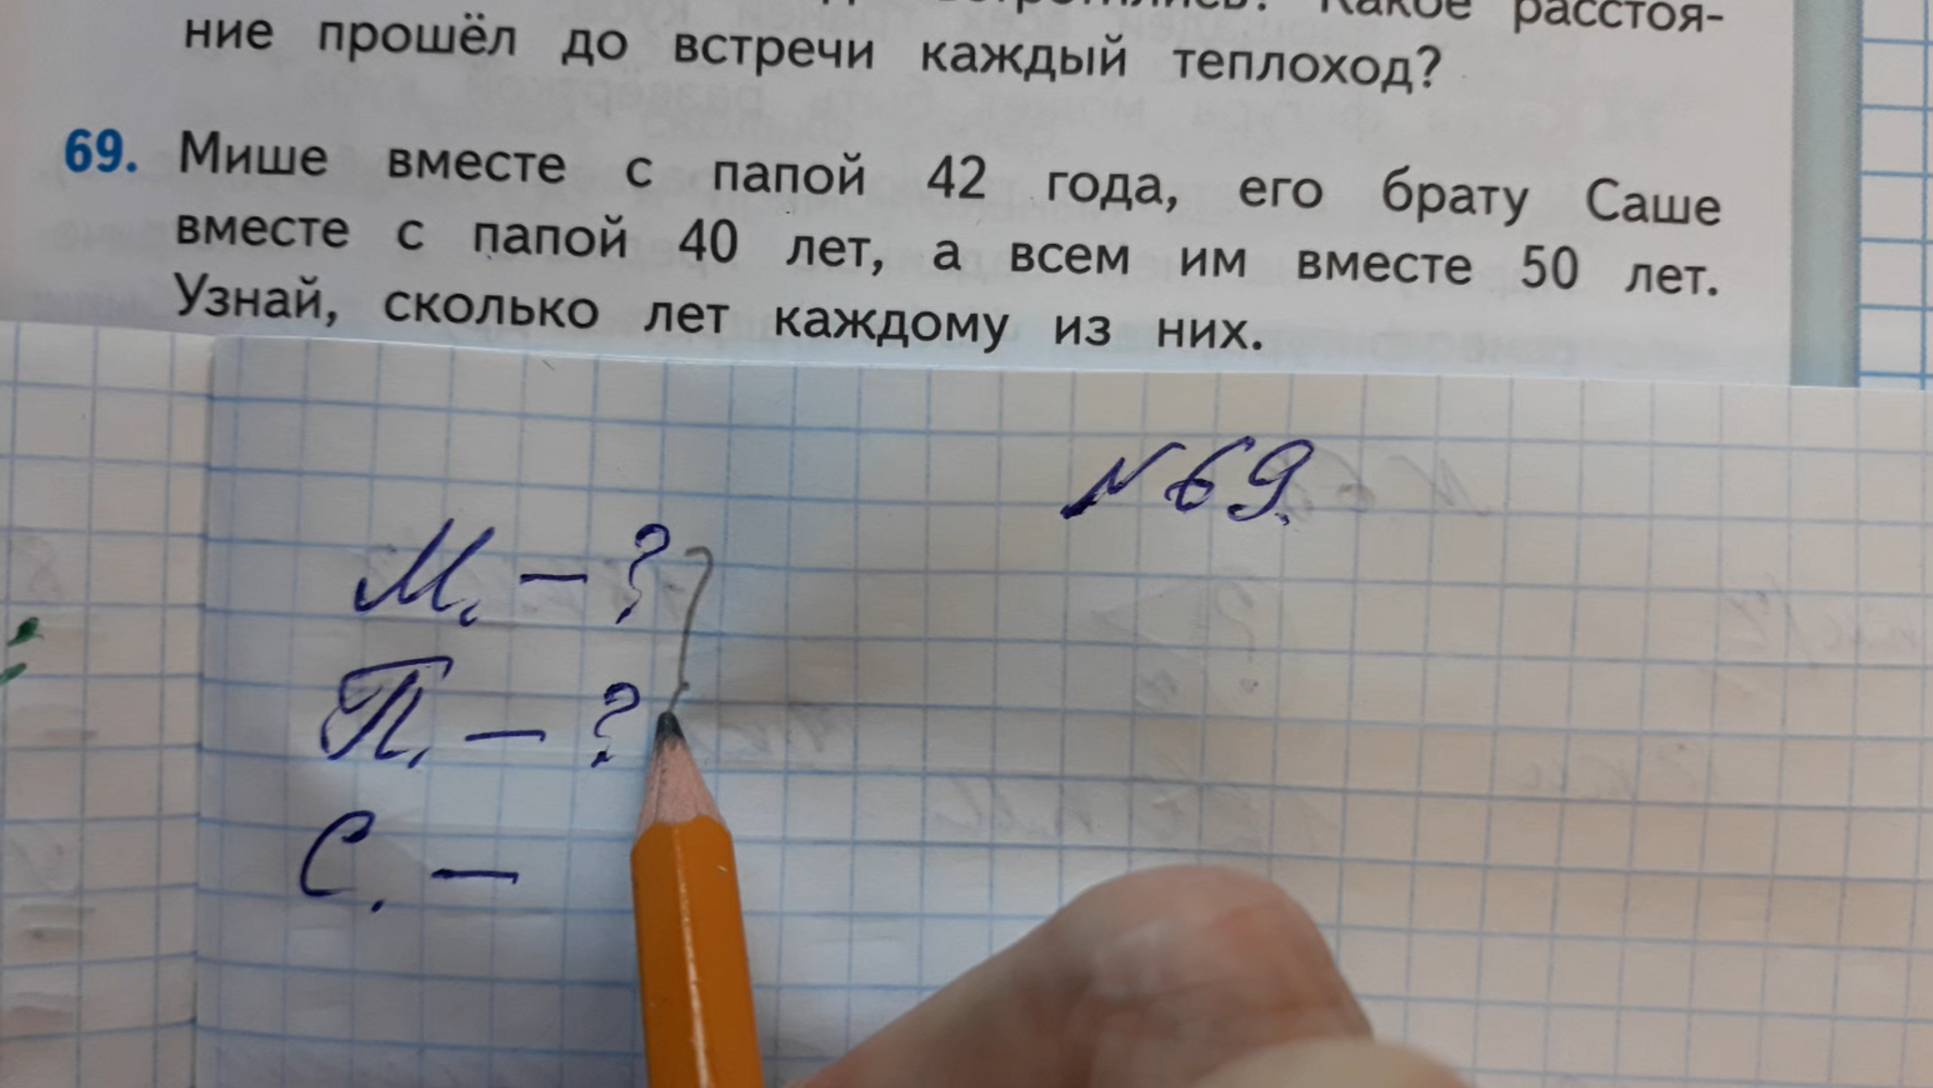 Какое расстоя-
ние прошёл до встречи каждый теплоход?
69. Мише вместе с папой 42 года, его брату Саше
вместе с папой 40 лет, а всем им вместе 50 лет.
Узнай, сколько лет каждому из них.
№ 69.
М. – ?
П. – ?
С. –